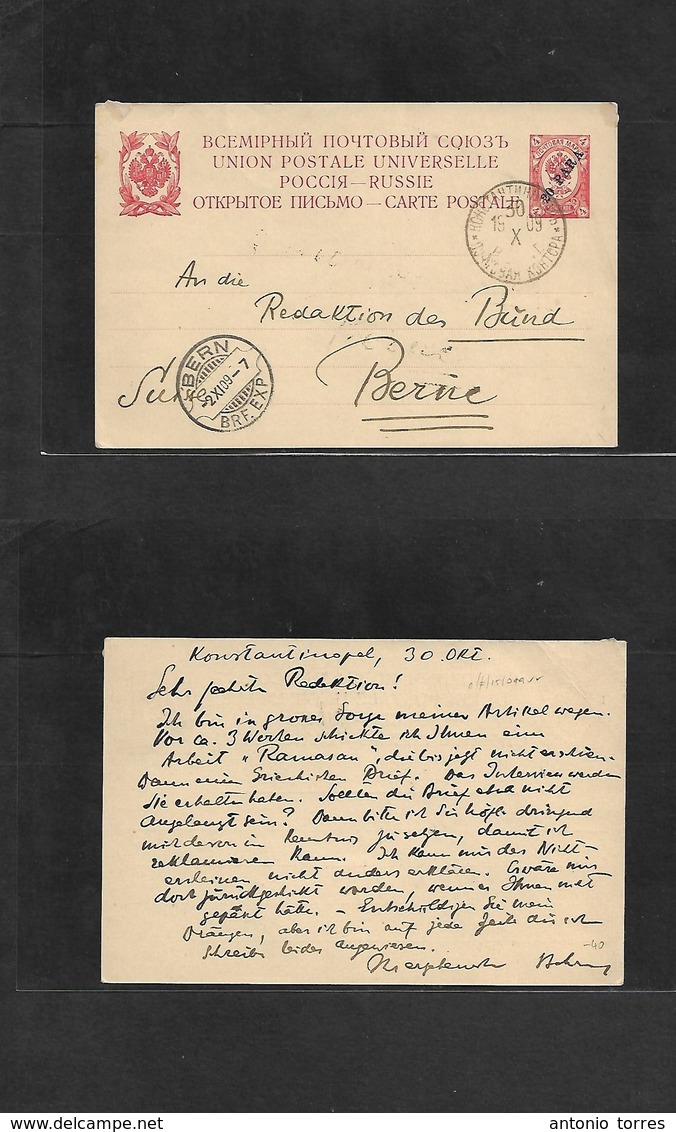 ВСЕМІРНЫЙ ПОЧТОВЫЙ СОЮЗЪ
UNION POSTALE UNIVERSELLE
РОССІЯ — RUSSIE
ОТКРЫТОЕ ПИСЬМО — CARTE POSTALE
4 4
20 PARA
30
19 X 09
КОНТОРА
An die
Redaktion des Bund
Berne
Suisse
BERN
-2.XI.09.-7
BRF. EXP.
Konstantinopel, 30. Okt.
Sehr geehrte Redaktion!
Ich bin in grosser Sorge meiner Artikel wegen.
Vor ca. 3 Wochen schickte ich Ihnen eine
Arbeit „Ramasan", die bis jetzt nicht erschien.
Dann einen Griechischen Brief. Das Interview werden
Sie erhalten haben. Sollten die Briefe nicht
angelangt sein? Dann bitte ich Sie höfl. dringend
mich davon in Kenntnis zu setzen, damit ich
reklamieren kann. Ich kann mir das Nicht-
erscheinen nicht anders erklären. Es wäre mir
doch zurückgeschickt worden, wenn es Ihnen nicht
gepasst hätte. – Entschuldigen Sie mein
Drängen, aber ich bin auf jede Zeile die ich
schreibe leider angewiesen.
-40
antonio torres